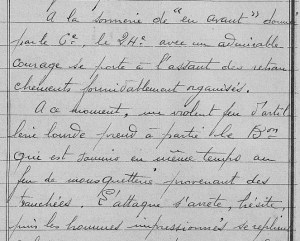 A la sonnerie de "en avant" donné
par le Cel, le 24e avec un admirable
courage se porte à l'assaut des retran
chements formidablement organisés.
A ce moment, un violent feu d'artil
lerie lourde prend à partie le Bon
qui est soumis en même temps au
feu de mousquetterie provenant des
tranchées. L'attaque s'arrête, hésite,
puis les hommes impressionnés se replient